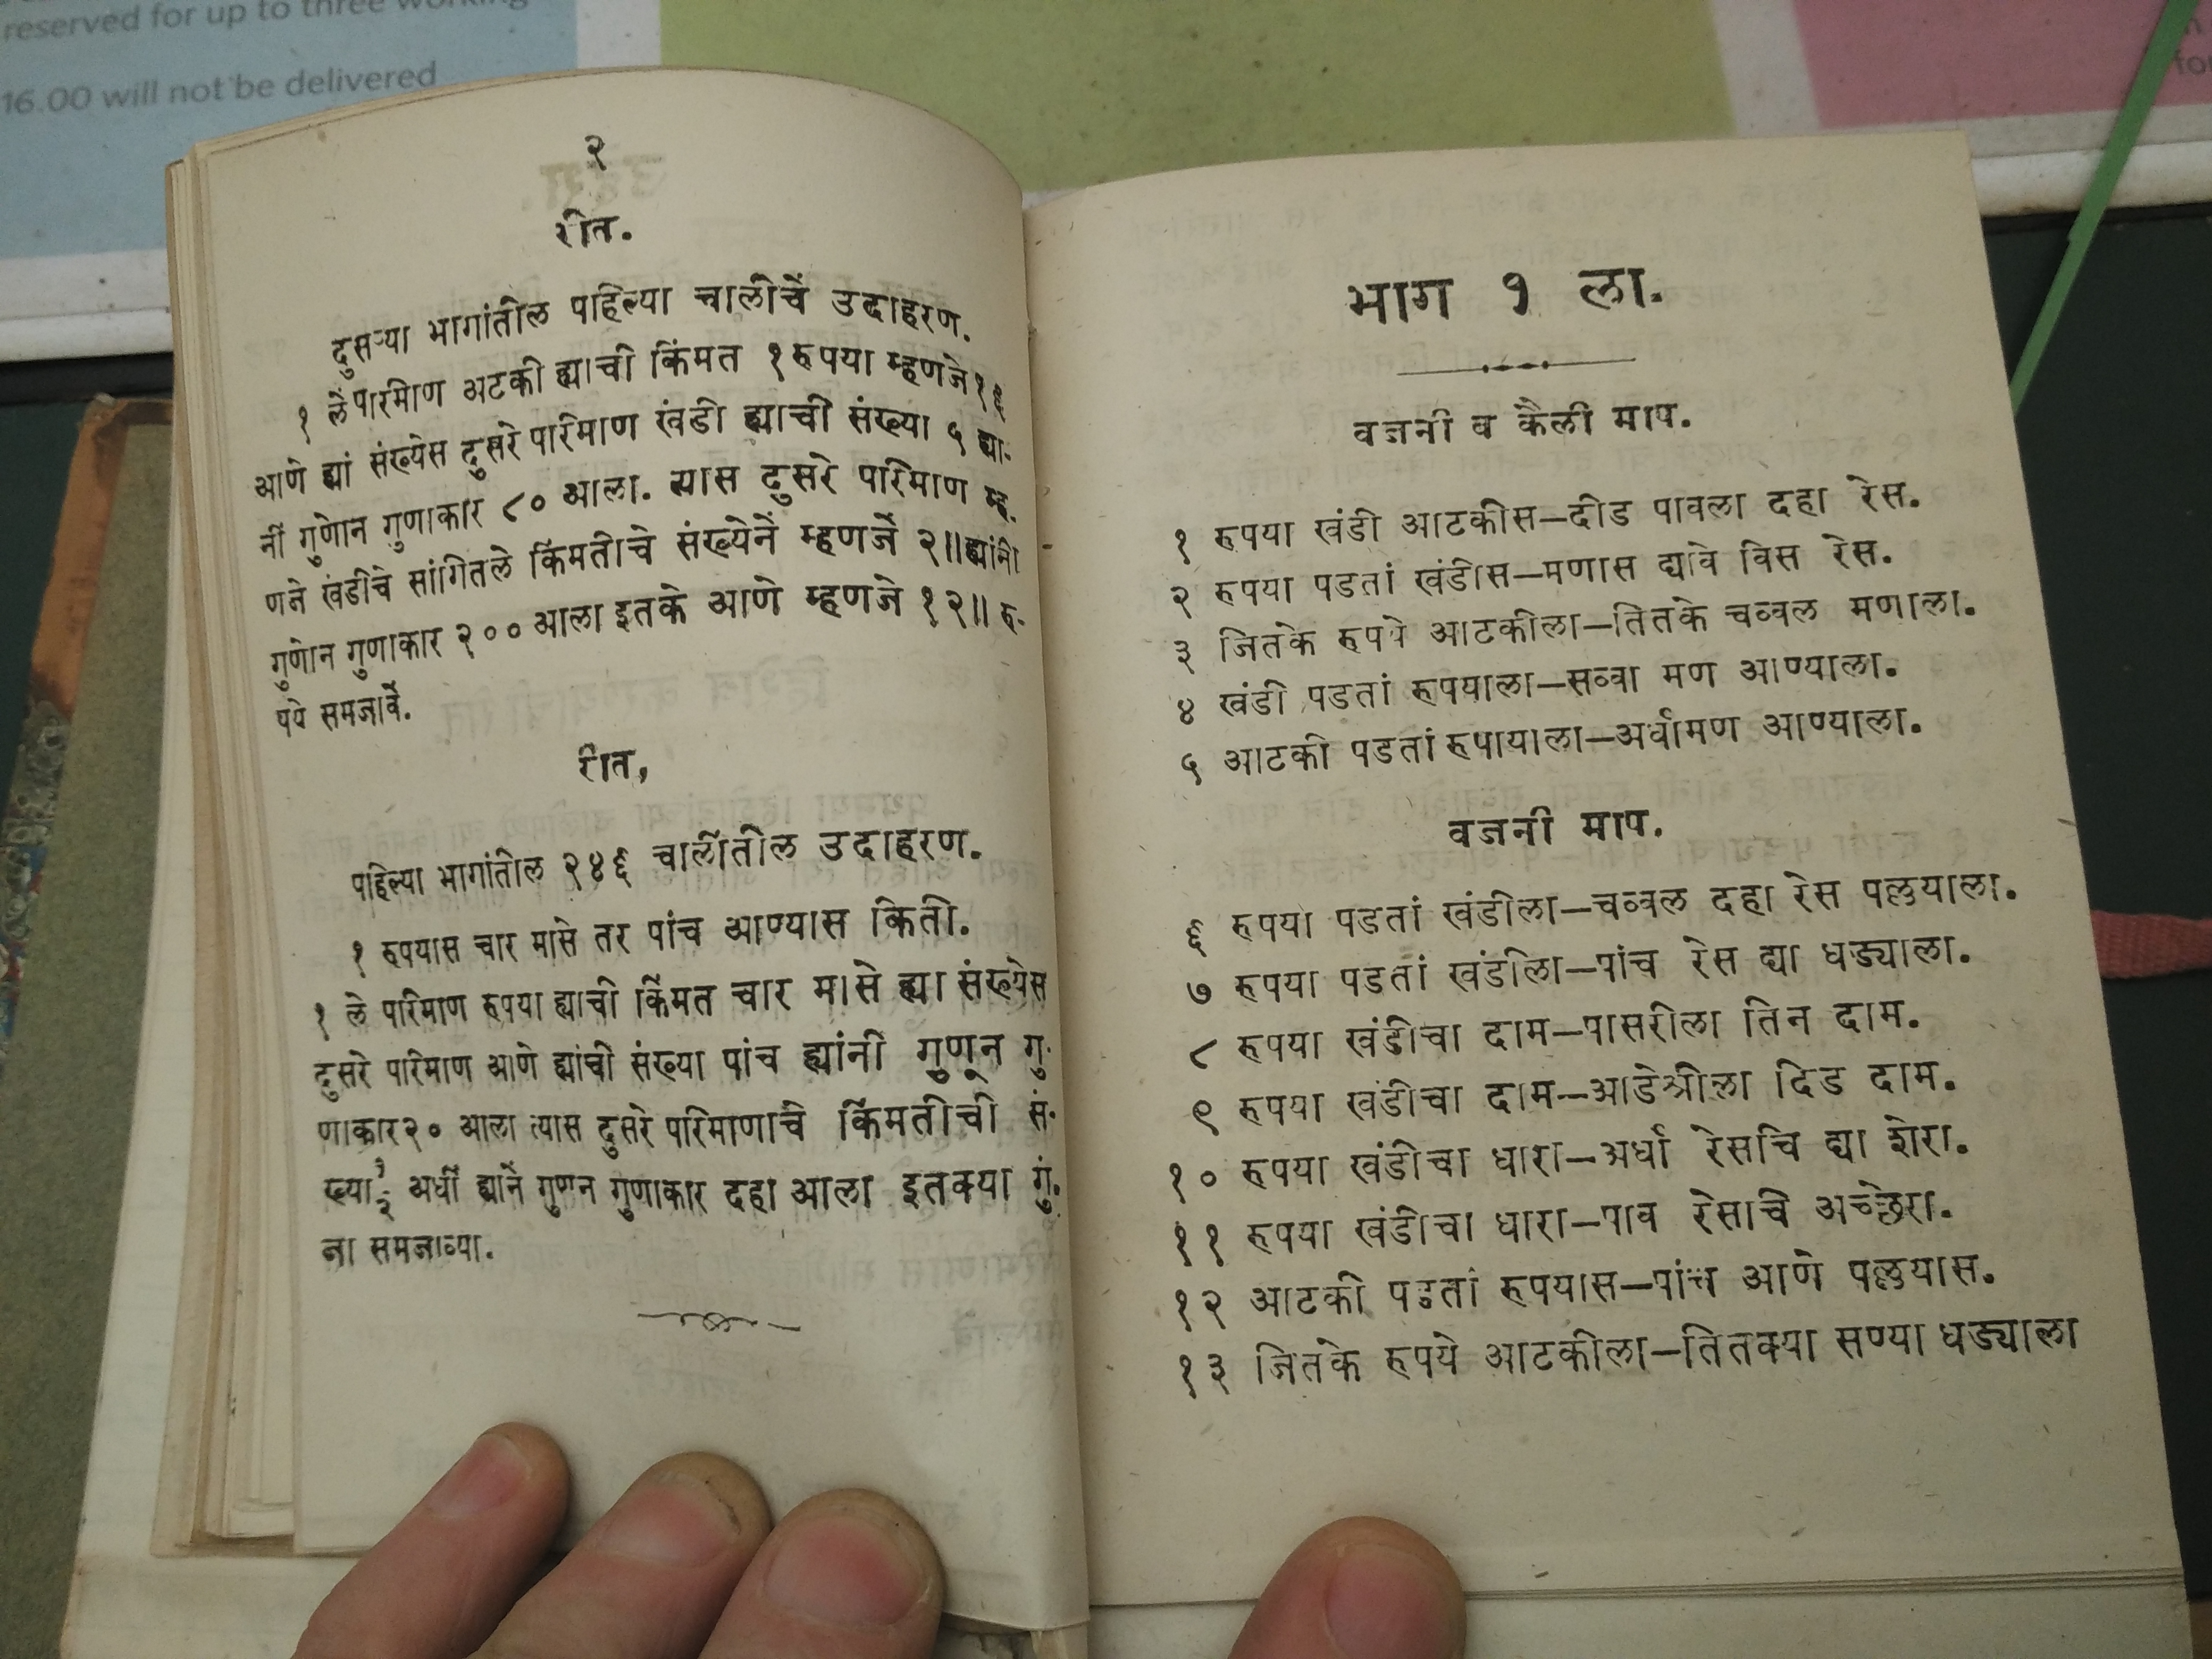 reserved for up to three working
16.00 will not be delivered
२
रीत.
दुसऱ्या भागांतील पाहिल्या चालीचें उदाहरण.
१ लें पारमाण अटकी ह्याची किंमत १ रुपया म्हणजे १६
आणे ह्या संख्येस दुसरे पारिमाण खंडी ह्याची संख्या ५ ह्या-
नीं गुणोन गुणाकार ८० आला. त्यास दुसरे पारिमाण म्ह-
णजे खंडीचे सांगितले किंमतीचे संख्येनें म्हणजें २॥ ह्यांनी
गुणोन गुणाकार २०० आला इतके आणे म्हणजे १२॥ रु-
पये समजावें.
रीत,
पहिल्या भागांतील २४६ चालींतील उदाहरण.
१ रुपयास चार मासे तर पांच आण्यास किती.
१ ले परिमाण रुपया ह्याची किंमत चार मासे ह्या संख्येस
दुसरे परिमाण आणे ह्यांची संख्या पांच ह्यांनी गुणून गु-
णाकार २० आला त्यास दुसरे परिमाणाचे किंमतीची सं-
ख्या १/२ अर्धी ह्यानें गुणन गुणाकार दहा आला इतक्या गुं-
जा समजाव्या.
भाग १ ला.
वजनी व कैली माप.
१ रुपया खंडी आटकीस—दीड पावला दहा रेस.
२ रुपया पडतां खंडीस—मणास द्यावे विस रेस.
३ जितके रुपये आटकीला—तितके चव्वल मणाला.
४ खंडी पडतां रुपयाला—सव्वा मण आण्याला.
५ आटकी पडतां रुपायाला—अर्धामण आण्याला.
वजनी माप.
६ रुपया पडतां खंडीला—चव्वल दहा रेस पल्लयाला.
७ रुपया पडतां खंडीला—पांच रेस द्या धड्याला.
८ रुपया खंडीचा दाम—पासरीला तिन दाम.
९ रुपया खंडीचा दाम—आडेश्रीला दिड दाम.
१० रुपया खंडीचा धारा—अर्धा रेसचि द्या शेरा.
११ रुपया खंडीचा धारा—पाव रेसाचे अच्छेरा.
१२ आटकी पडतां रुपयास—पांच आणे पल्लयास.
१३ जितके रुपये आटकीला—तितक्या सण्या धड्याला